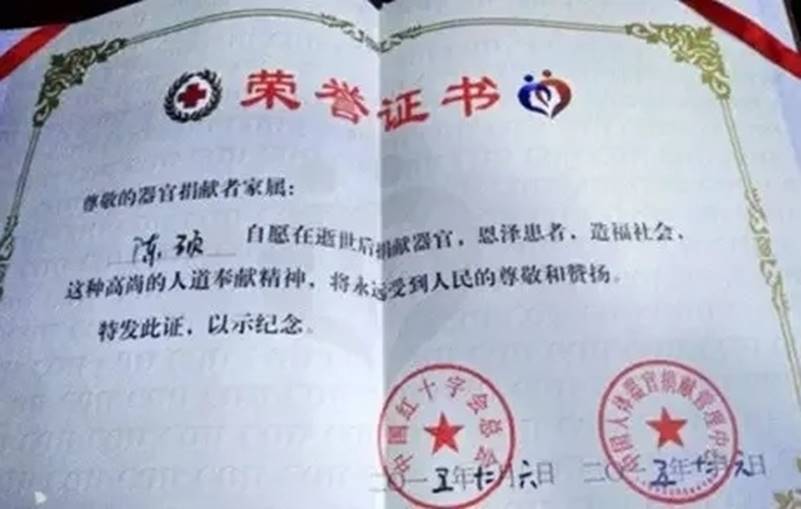 荣誉证书
尊敬的器官捐献者家属：
陈硕 自愿在逝世后捐献器官，恩泽患者，造福社会，
这种高尚的人道奉献精神，将永远受到人民的尊敬和赞扬。
特发此证，以示纪念。
中国红十字会总会
中国人体器官捐献管理中心
二〇一五年十二月六日 二〇一五年十二月六日